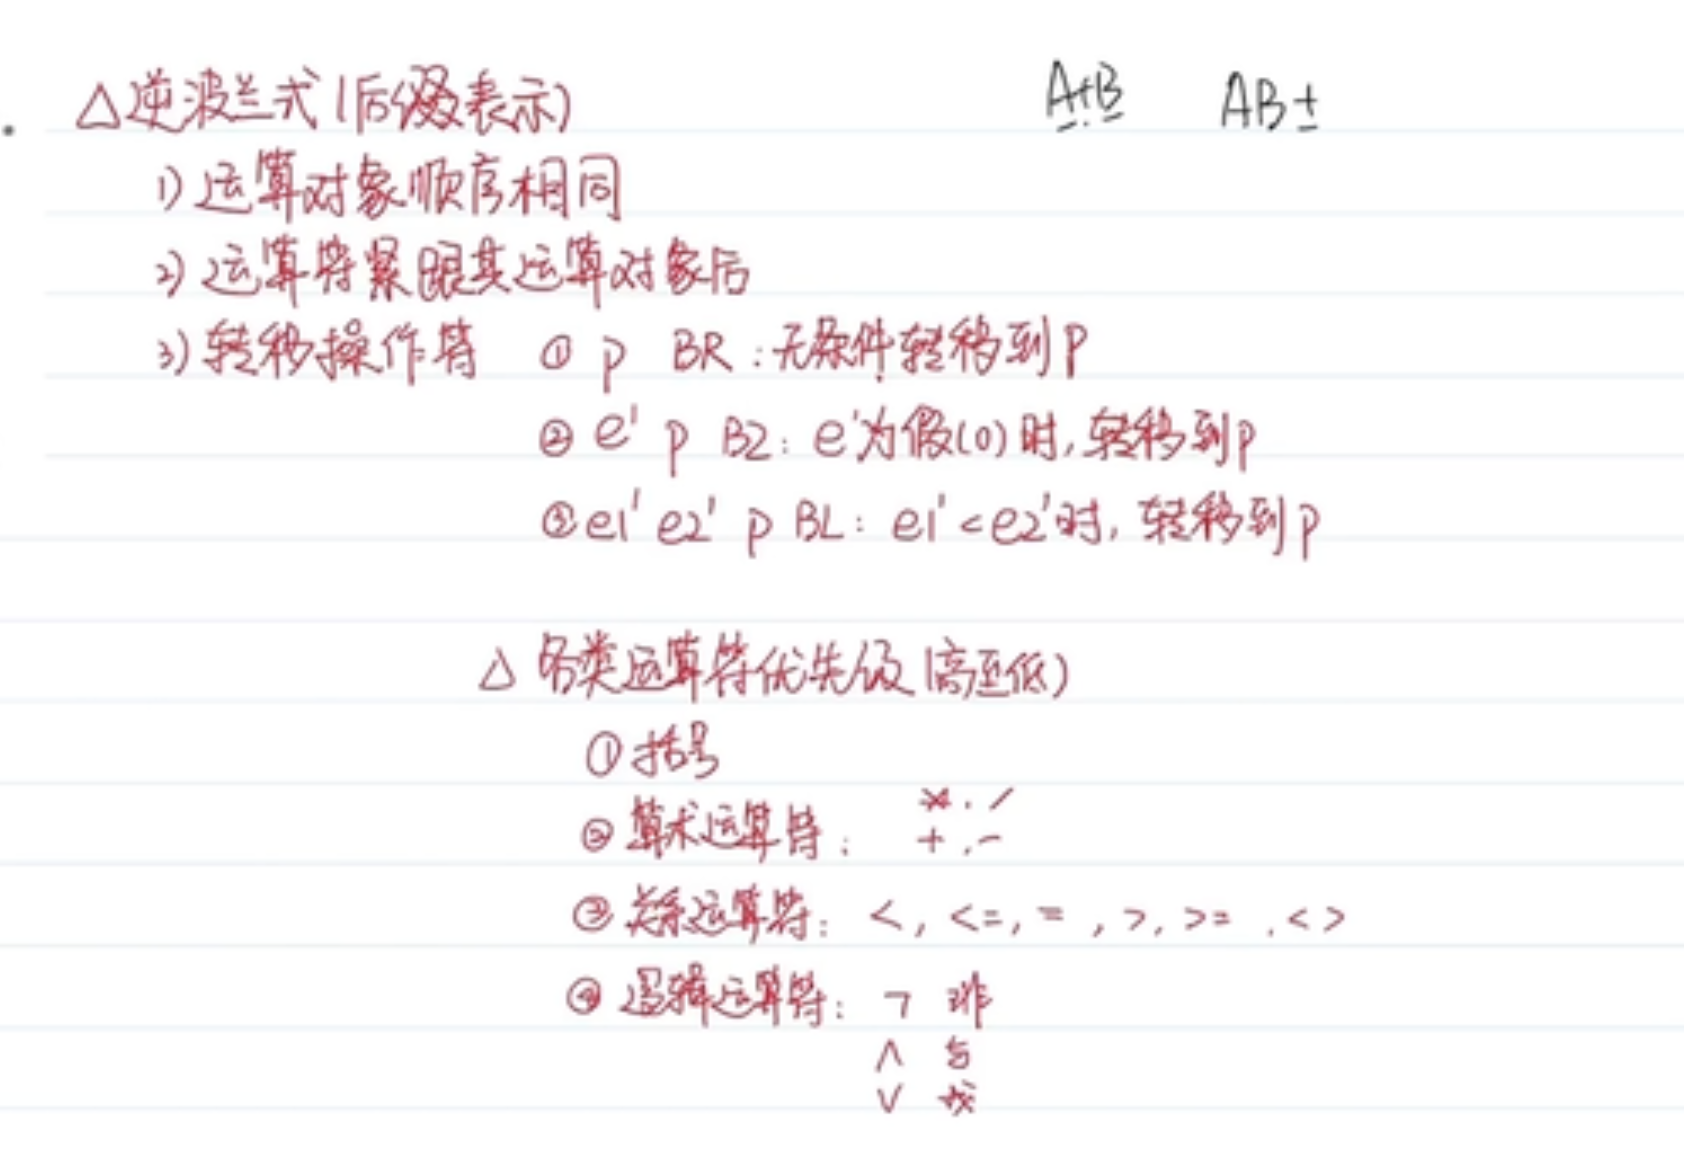 △逆波兰式(后缀表示) A+B AB+
1) 运算对象顺序相同
2) 运算符紧跟其运算对象后
3) 转移操作符 ① p BR:无条件转移到p
② e' p BZ: e'为假(0)时,转移到p
③ e1' e2' p BL: e1'<e2'时,转移到p
△ 各类运算符优先级(高至低)
① 括号
② 算术运算符: *, /
+, -
③ 关系运算符: <, <=, =, >, >=, <>
④ 逻辑运算符: ¬ 非
∧ 与
∨ 或